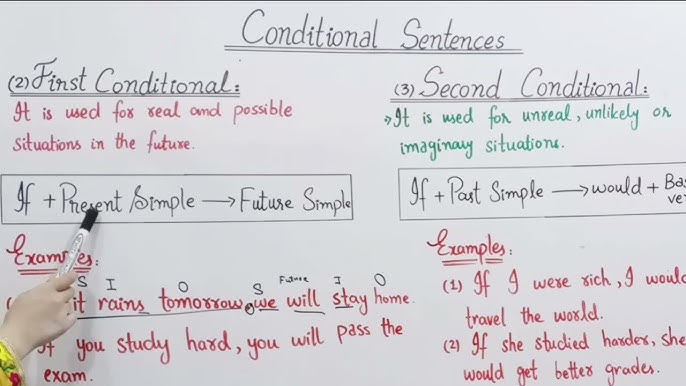 Conditional Sentences
(2) First Conditional:
It is used for real and possible
situations in the future.
If + Present Simple → Future Simple
Examples:
S I O S Future I O
it rains tomorrow, we will stay home.
you study hard, you will pass the
exam.
(3) Second Conditional:
→ It is used for unreal, unlikely or
imaginay situations.
If + Past Simple → would + Bas
ve
Examples:
(1) If I were rich, I would
travel the world.
(2) If she studied harder, she
would get better grades.